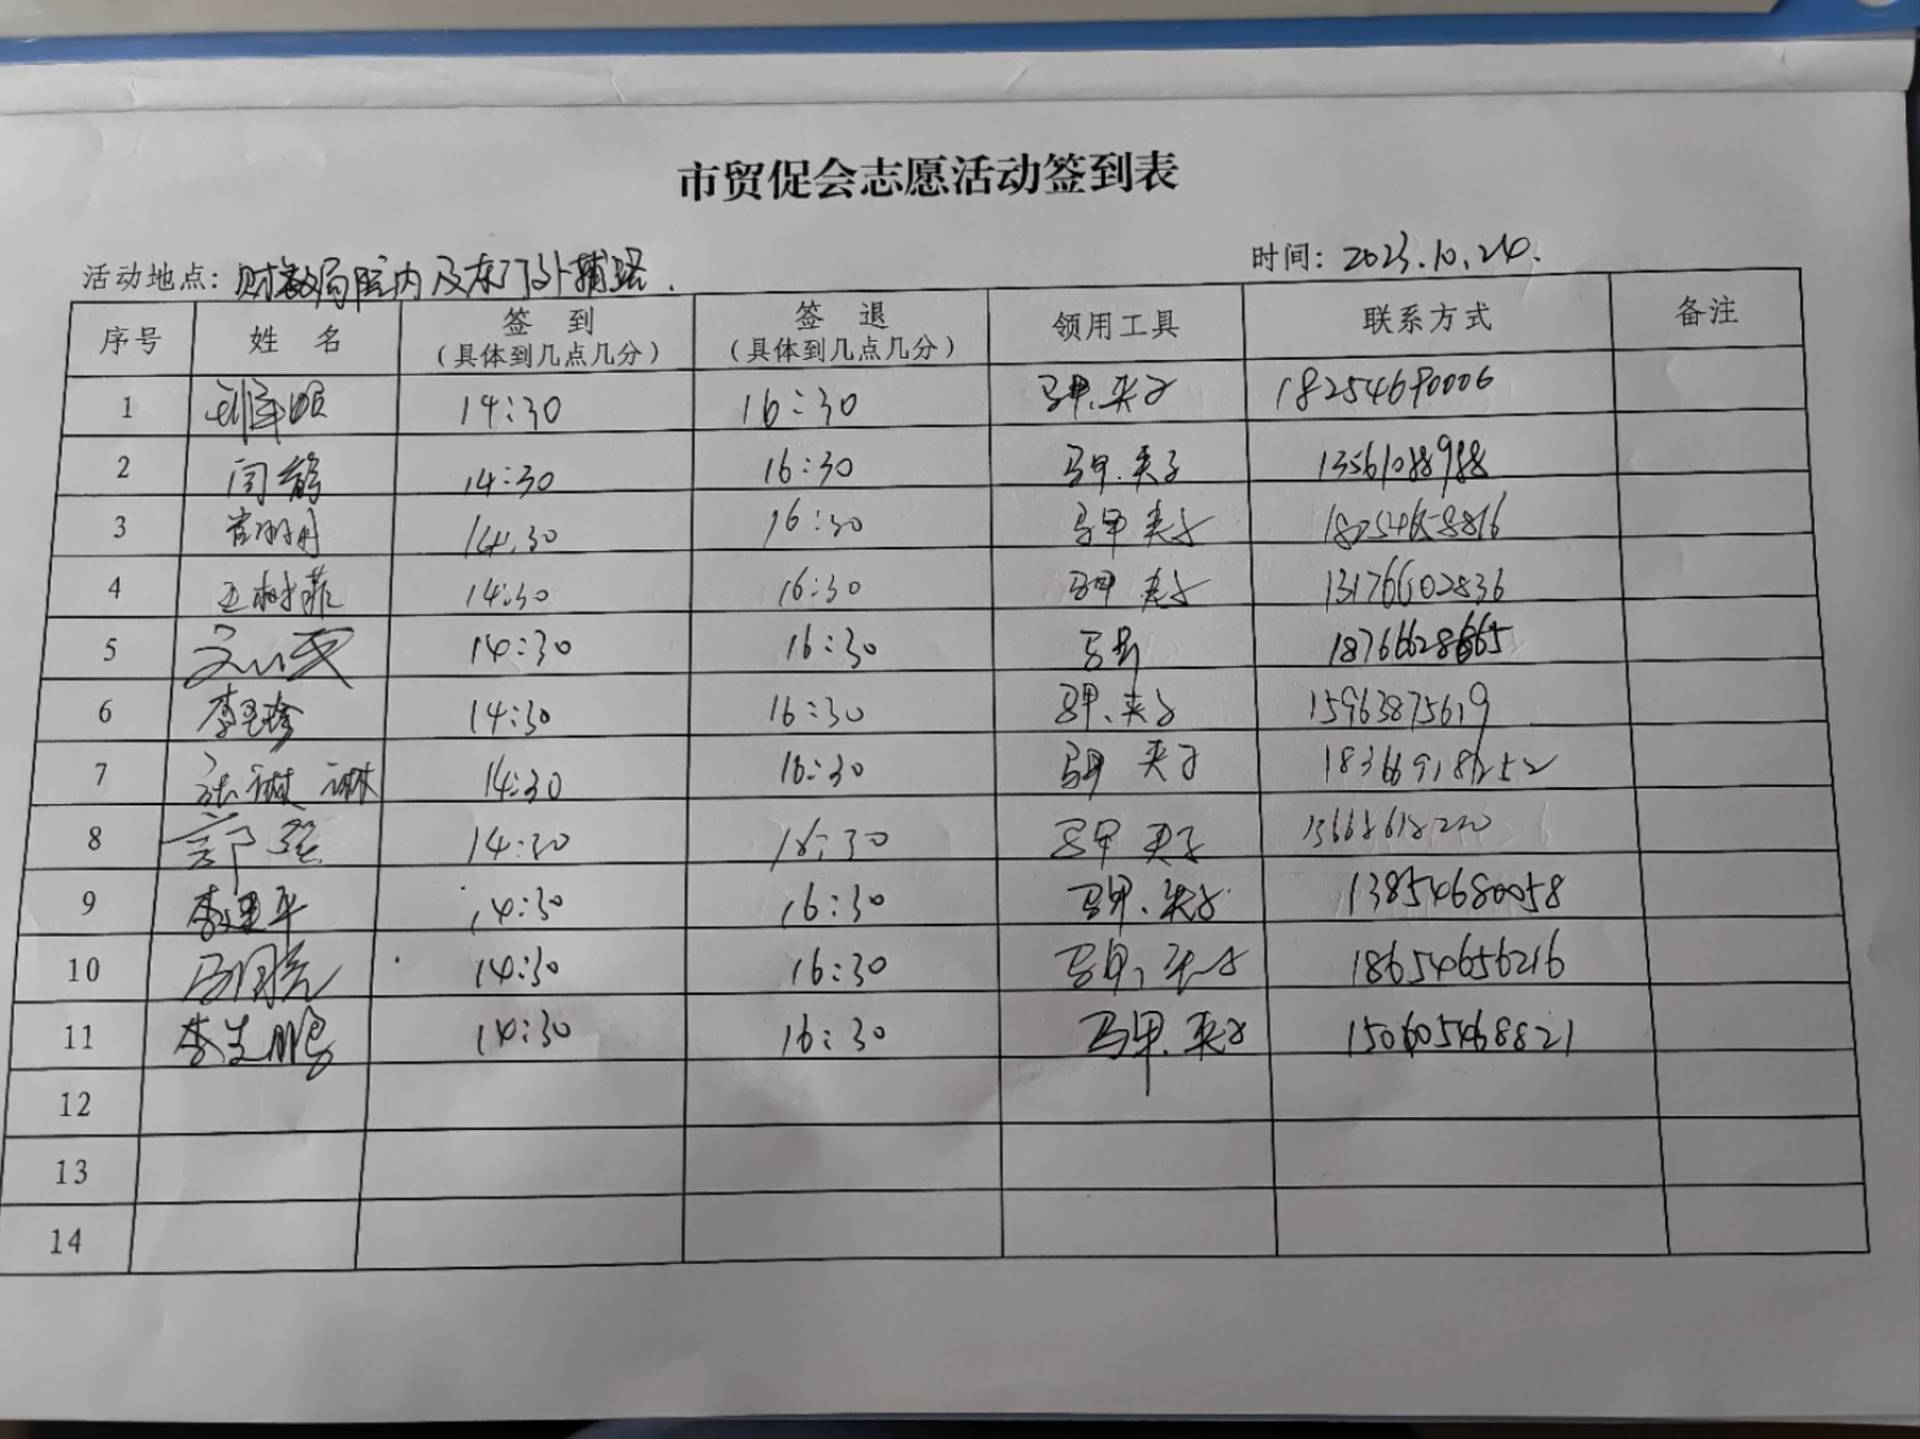 市贸促会志愿活动签到表
活动地点：财政局院内及东门外辅路. 时间：2023.10.24.
序号 姓 名 签 到 （具体到几点几分） 签 退 （具体到几点几分） 领用工具 联系方式 备注
1 14:30 16:30 马甲.夹子 18254690006
2 闫鹤 14:30 16:30 马甲.夹子 13561088988
3 14.30 16:30 马甲 夹子 18254658816
4 王树菲 14:30 16:30 马甲 夹子 13176602836
5 14:30 16:30 马甲 18766628665
6 李玉珍 14:30 16:30 马甲、夹子 15963875619
7 14:30 16:30 马甲 夹子 18366918252
8 郭强 14:30 16:30 马甲 夹子
9 李建平 14:30 16:30 马甲、夹子 13854680058
10 14:30 16:30 马甲、夹子 18654656216
11 李生鹏 14:30 16:30 马甲.夹子 150605468821
12
13
14